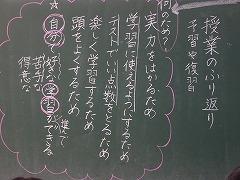 授業のふり返り
予習や復習
何のため？
実力をはかるため
学習に使えるようにするため
テストでいい点数をとるため
楽しく学習するため
頭をよくするため
自分で好きな学習ができる
苦手な
得意な